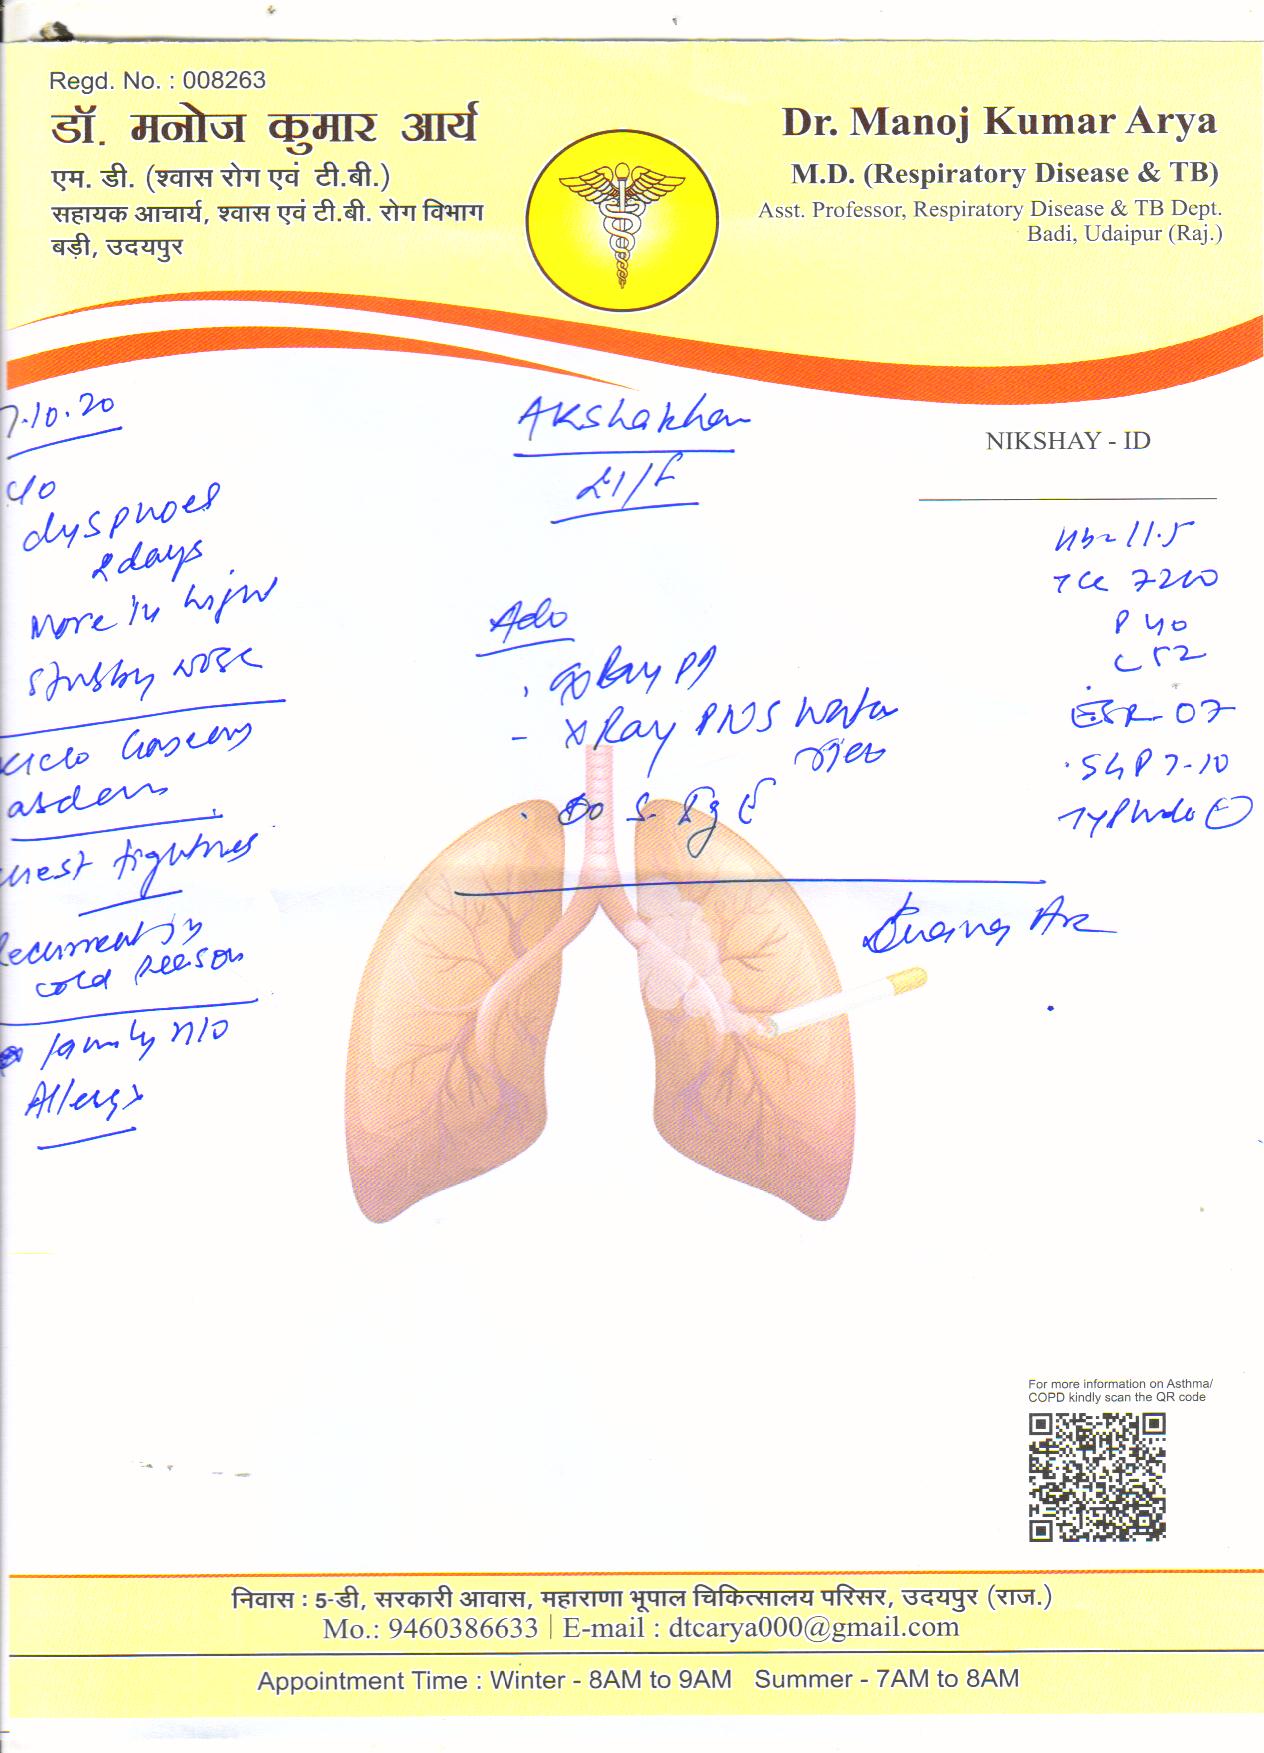 Regd. No. : 008263
डॉ. मनोज कुमार आर्य
एम. डी. (श्वास रोग एवं टी.बी.)
सहायक आचार्य, श्वास एवं टी.बी. रोग विभाग
बड़ी, उदयपुर
Dr. Manoj Kumar Arya
M.D. (Respiratory Disease & TB)
Asst. Professor, Respiratory Disease & TB Dept.
Badi, Udaipur (Raj.)
7.10.20
C/O
dyspnoea
2 days
More in night
chest tightness
Recurrent in
cold season
family H/O
Allergy
21/F
Adv
X Ray PNS water
S. IgE
NIKSHAY - ID
Hb - 11.5
TLC 7200
P 40
L 52
ESR - 07
Typhidot
For more information on Asthma/
COPD kindly scan the QR code
निवास : 5-डी, सरकारी आवास, महाराणा भूपाल चिकित्सालय परिसर, उदयपुर (राज.)
Mo.: 9460386633 | E-mail : dtcarya000@gmail.com
Appointment Time : Winter - 8AM to 9AM Summer - 7AM to 8AM